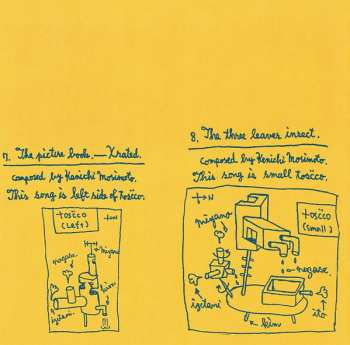 7. The picture book. — X rated.
composed by Kenichi Morimoto.
This song is left side of tosïcco.
tosïcco
(Left)
t→N
H→
megane
negase
kim
igelami
8. The three leaves insect.
composed by Kenichi Morimoto.
This song is small tosïcco.
t→N
megano
tosïcco
(small)
negase
igelami
kim
ito